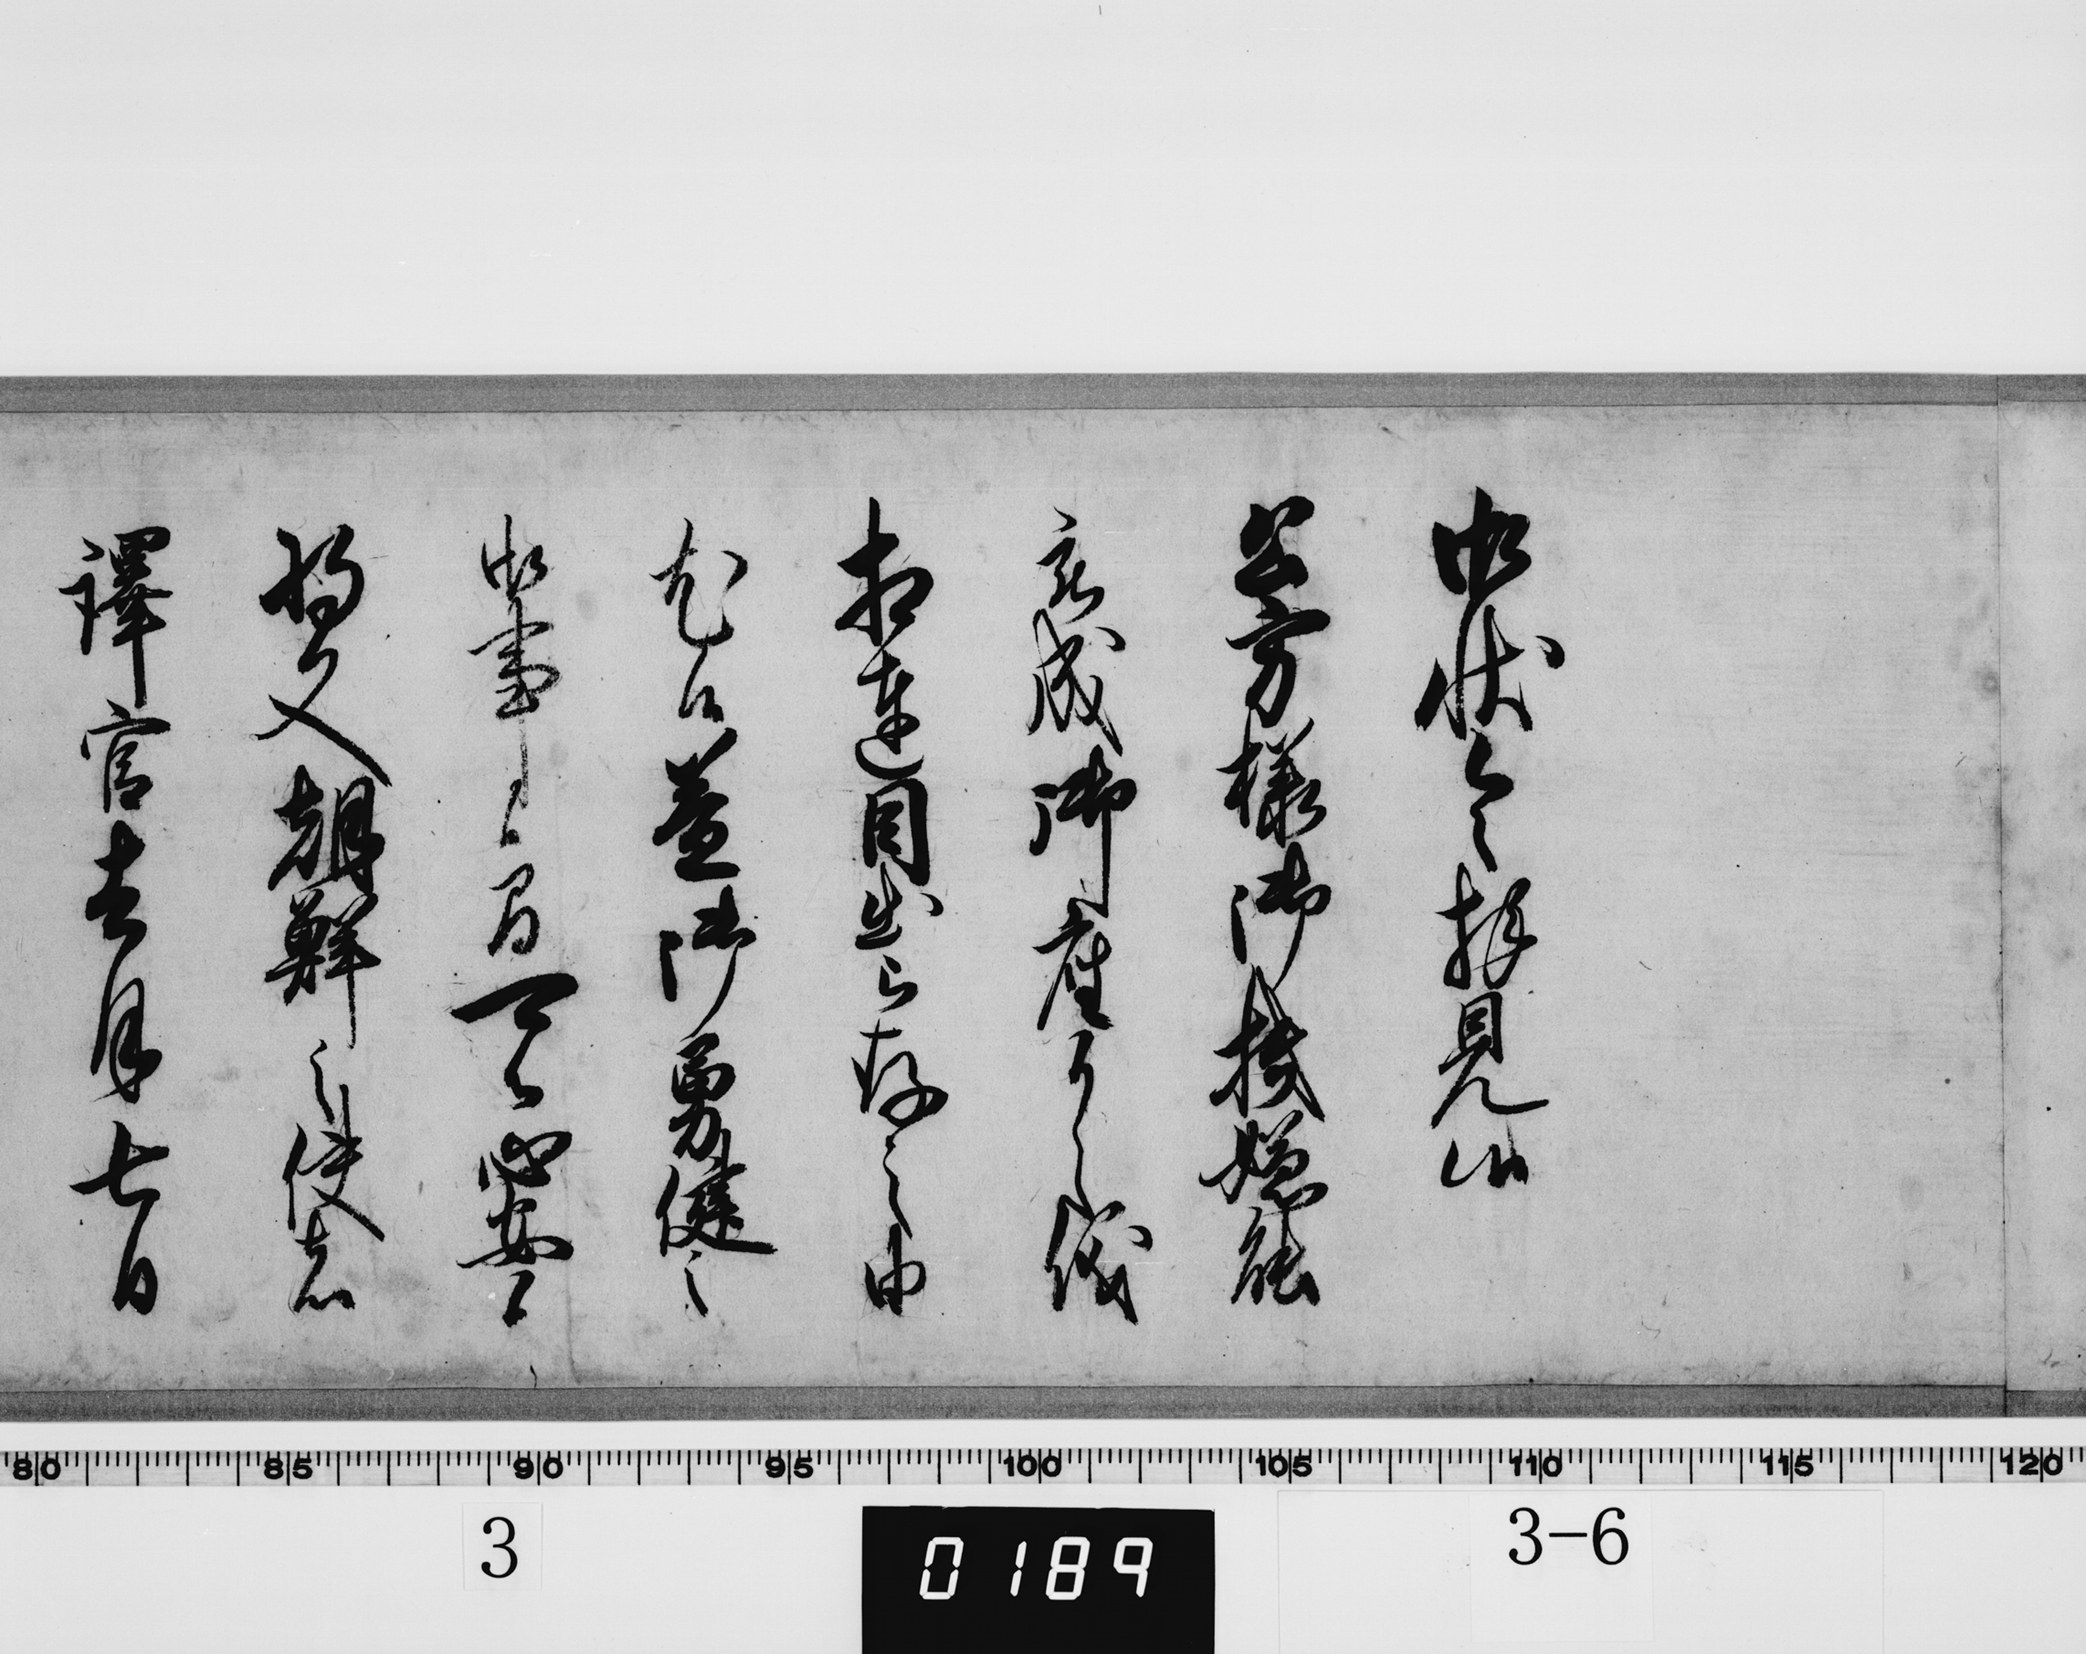 御状令拝見候
公方様御機嫌能
被成御座儀
相達目出被存之由
尤候益御勇健之
御事候間可被心安候
将又朝鮮之使者
譯官去月七日
80 85 90 95 100 105 110 115 120
3
0189
3-6